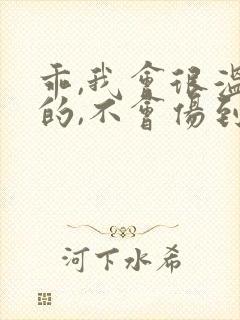 乖,我會很溫
的,不會傷到
河下水希